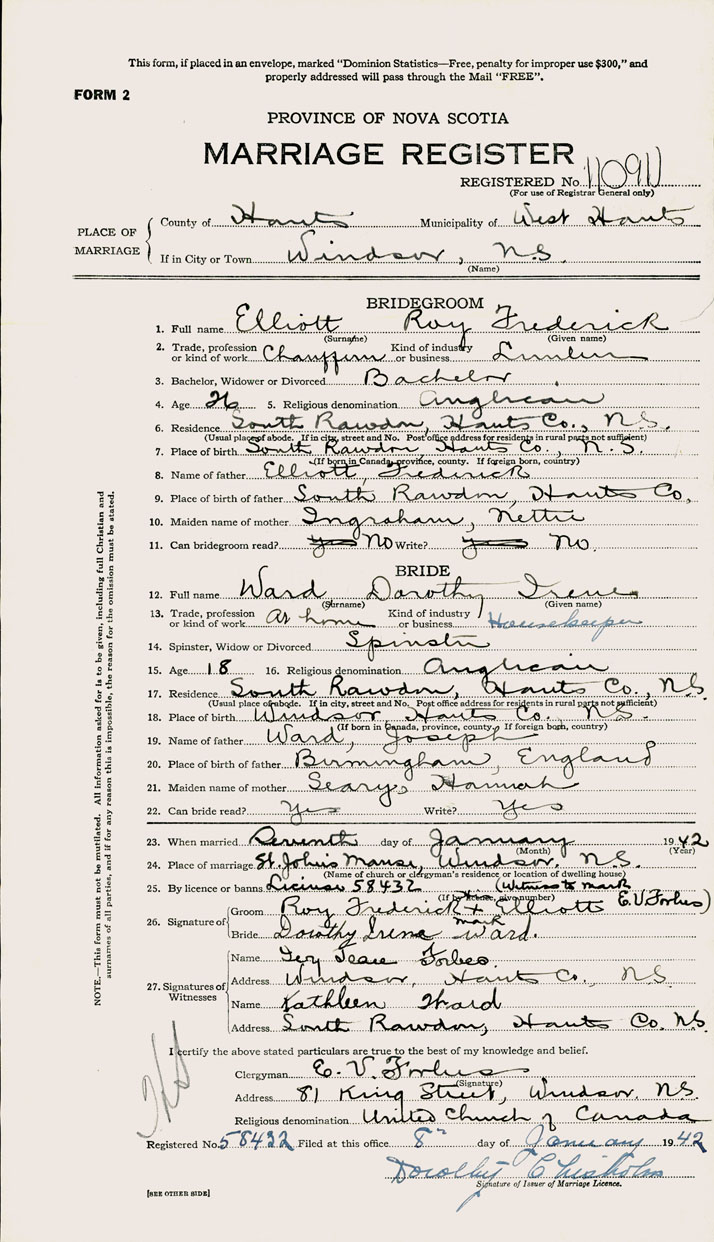 This form, if placed in an envelope, marked "Dominion Statistics—Free, penalty for improper use $300," and
properly addressed will pass through the Mail "FREE".
FORM 2
PROVINCE OF NOVA SCOTIA
MARRIAGE REGISTER
REGISTERED No.
(For use of Registrar General only)
PLACE OF MARRIAGE
County of Hants Municipality of West Hants
If in City or Town Windsor, N.S.
(Name)
BRIDEGROOM
1. Full name Elliott Roy Frederick
(Surname) (Given name)
2. Trade, profession or kind of work Kind of industry or business Lumber
3. Bachelor, Widower or Divorced Bachelor
4. Age 26 5. Religious denomination Anglican
6. Residence South Rawdon, Hants Co., N.S.
(Usual place of abode. If in city, street and No. Post office address for residents in rural parts not sufficient)
7. Place of birth South Rawdon, Hants Co., N.S.
(If born in Canada, province, county. If foreign born, country)
8. Name of father Elliott, Frederick
9. Place of birth of father South Rawdon, Hants Co.
10. Maiden name of mother Ingraham, Nettie
11. Can bridegroom read? Yes No Write? Yes No.
BRIDE
12. Full name Ward Dorothy Irene
(Surname) (Given name)
13. Trade, profession or kind of work At home Kind of industry or business Housekeeper
14. Spinster, Widow or Divorced Spinster
15. Age 18 16. Religious denomination Anglican
17. Residence South Rawdon, Hants Co., N.S.
(Usual place of abode. If in city, street and No. Post office address for residents in rural parts not sufficient)
18. Place of birth Windsor Hants Co. N.S.
(If born in Canada, province, county. If foreign born, country)
19. Name of father Ward, Joseph
20. Place of birth of father Birmingham, England
21. Maiden name of mother Hannah
22. Can bride read? Yes Write? Yes
23. When married Seventh day of January 1942
(Month) (Year)
24. Place of marriage St. John's Manse, Windsor. N.S.
(Name of church or clergyman's residence or location of dwelling house)
25. By licence or banns License 58432 (Witness to mark
(If by license, give number)
26. Signature of
Groom Roy Frederick x Elliott E.V. Forbes)
mark
Bride Dorothy Irene Ward.
27. Signatures of Witnesses
Name Jean Forbes
Address Windsor, Hants Co., N.S.
Name Kathleen Ward
Address South Rawdon, Hants Co. N.S.
I certify the above stated particulars are true to the best of my knowledge and belief.
Clergyman E. V. Forbes
(Signature)
Address 81 King Street, Windsor, N.S.
Religious denomination United Church of Canada
Registered No. 58432 Filed at this office 8th day of January 1942
Dorothy Chisholm
Signature of Issuer of Marriage Licence.
[SEE OTHER SIDE]
NOTE.—This form must not be mutilated. All information asked for is to be given, including full Christian and
surnames of all parties, and if for any reason this is impossible, the reason for the omission must be stated.